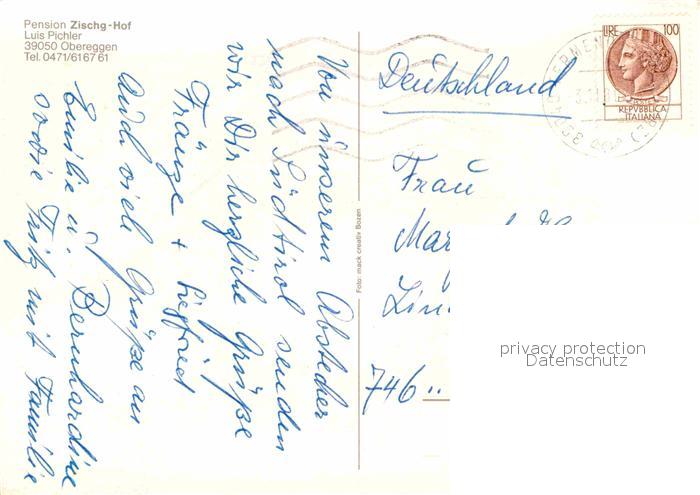 Pension Zischg-Hof
Luis Pichler
39050 Obereggen
Tel. 0471/616761
Von unserem Abstecher
nach Südtirol senden
wir Dir herzliche Grüße
Franze + Siegfried
Auch viele Grüße an
Emilie u. Bernhardine
sowie Fritz mit Familie
Foto: mack creativ Bozen
LIRE 100
REPVBBLICA
ITALIANA
Deutschland
Frau
Mar
746
privacy protection
Datenschutz